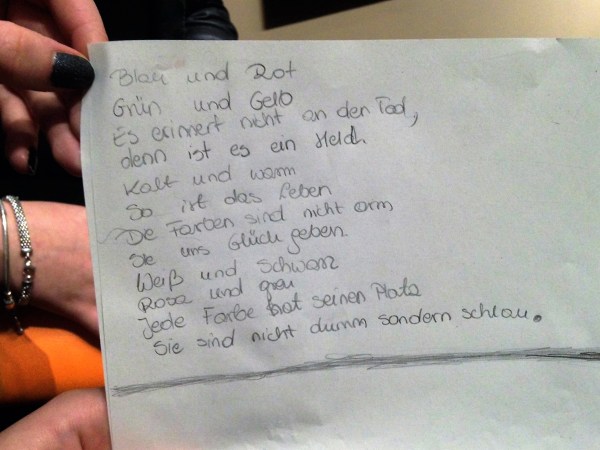 Blau und Rot
Grün und Gelb
Es erinnert nicht an den Tod,
denn ist es ein Held.
Kalt und warm
So ist das Leben
Die Farben sind nicht arm
Sie uns Glück geben.
Weiß und Schwarz
Rosa und grau
Jede Farbe hat seinen Platz
Sie sind nicht dumm sondern schlau.